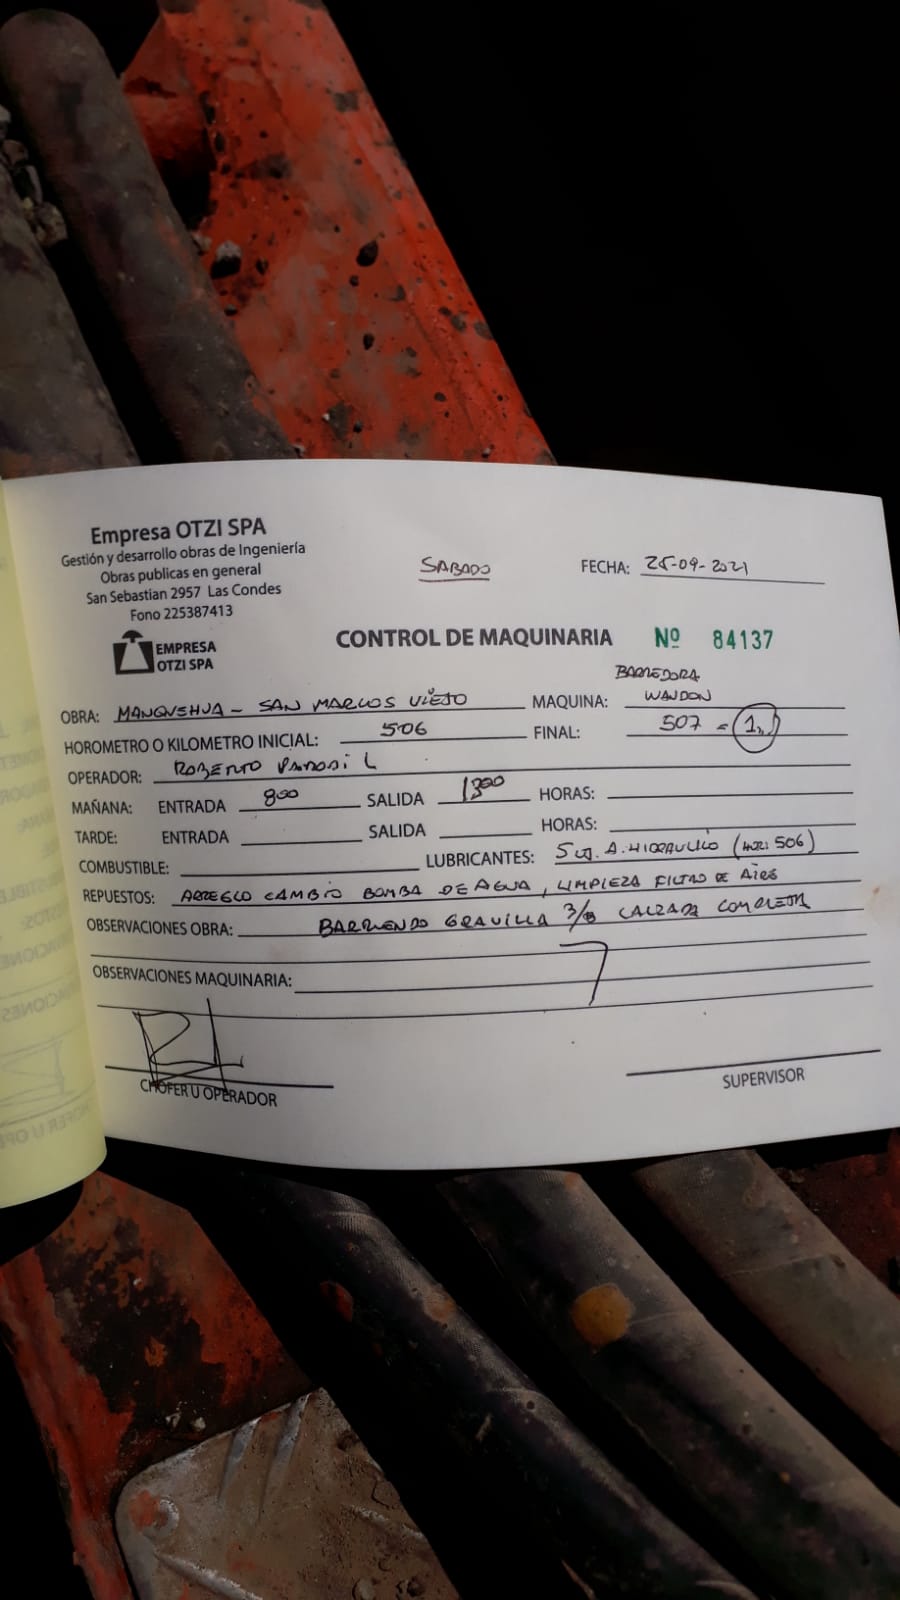 Empresa OTZI SPA
Gestión y desarrollo obras de Ingeniería
Obras publicas en general
San Sebastian 2957 Las Condes
Fono 225387413
EMPRESA
OTZI SPA
SABADO
FECHA: 25-09-2021
CONTROL DE MAQUINARIA Nº 84137
OBRA: MANQUEHUA - SAN MARCOS VIEJO MAQUINA: BARREDORA WALDON
HOROMETRO O KILOMETRO INICIAL: 506 FINAL: 507 = 1
OPERADOR: ROBERTO L
MAÑANA: ENTRADA 800 SALIDA 1300 HORAS:
TARDE: ENTRADA SALIDA HORAS:
COMBUSTIBLE: LUBRICANTES: 5 A. HIDRAULICO 506)
REPUESTOS: ARREGLO CAMBIO BOMBA DE AGUA, LIMPIEZA FILTRO DE AIRE
OBSERVACIONES OBRA: BARRIENDO GRAVILLA 3/8 CALZADA COMPLETA
OBSERVACIONES MAQUINARIA:
CHOFER U OPERADOR
SUPERVISOR